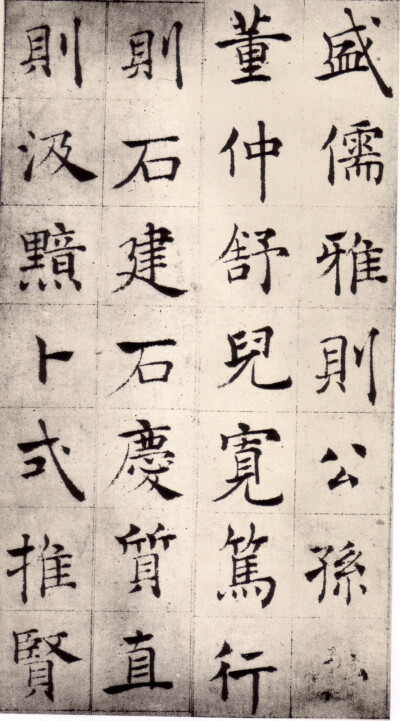 盛儒雅則公孫弘
董仲舒兒寬篤行
則石建石慶質直
則汲黯卜式推賢